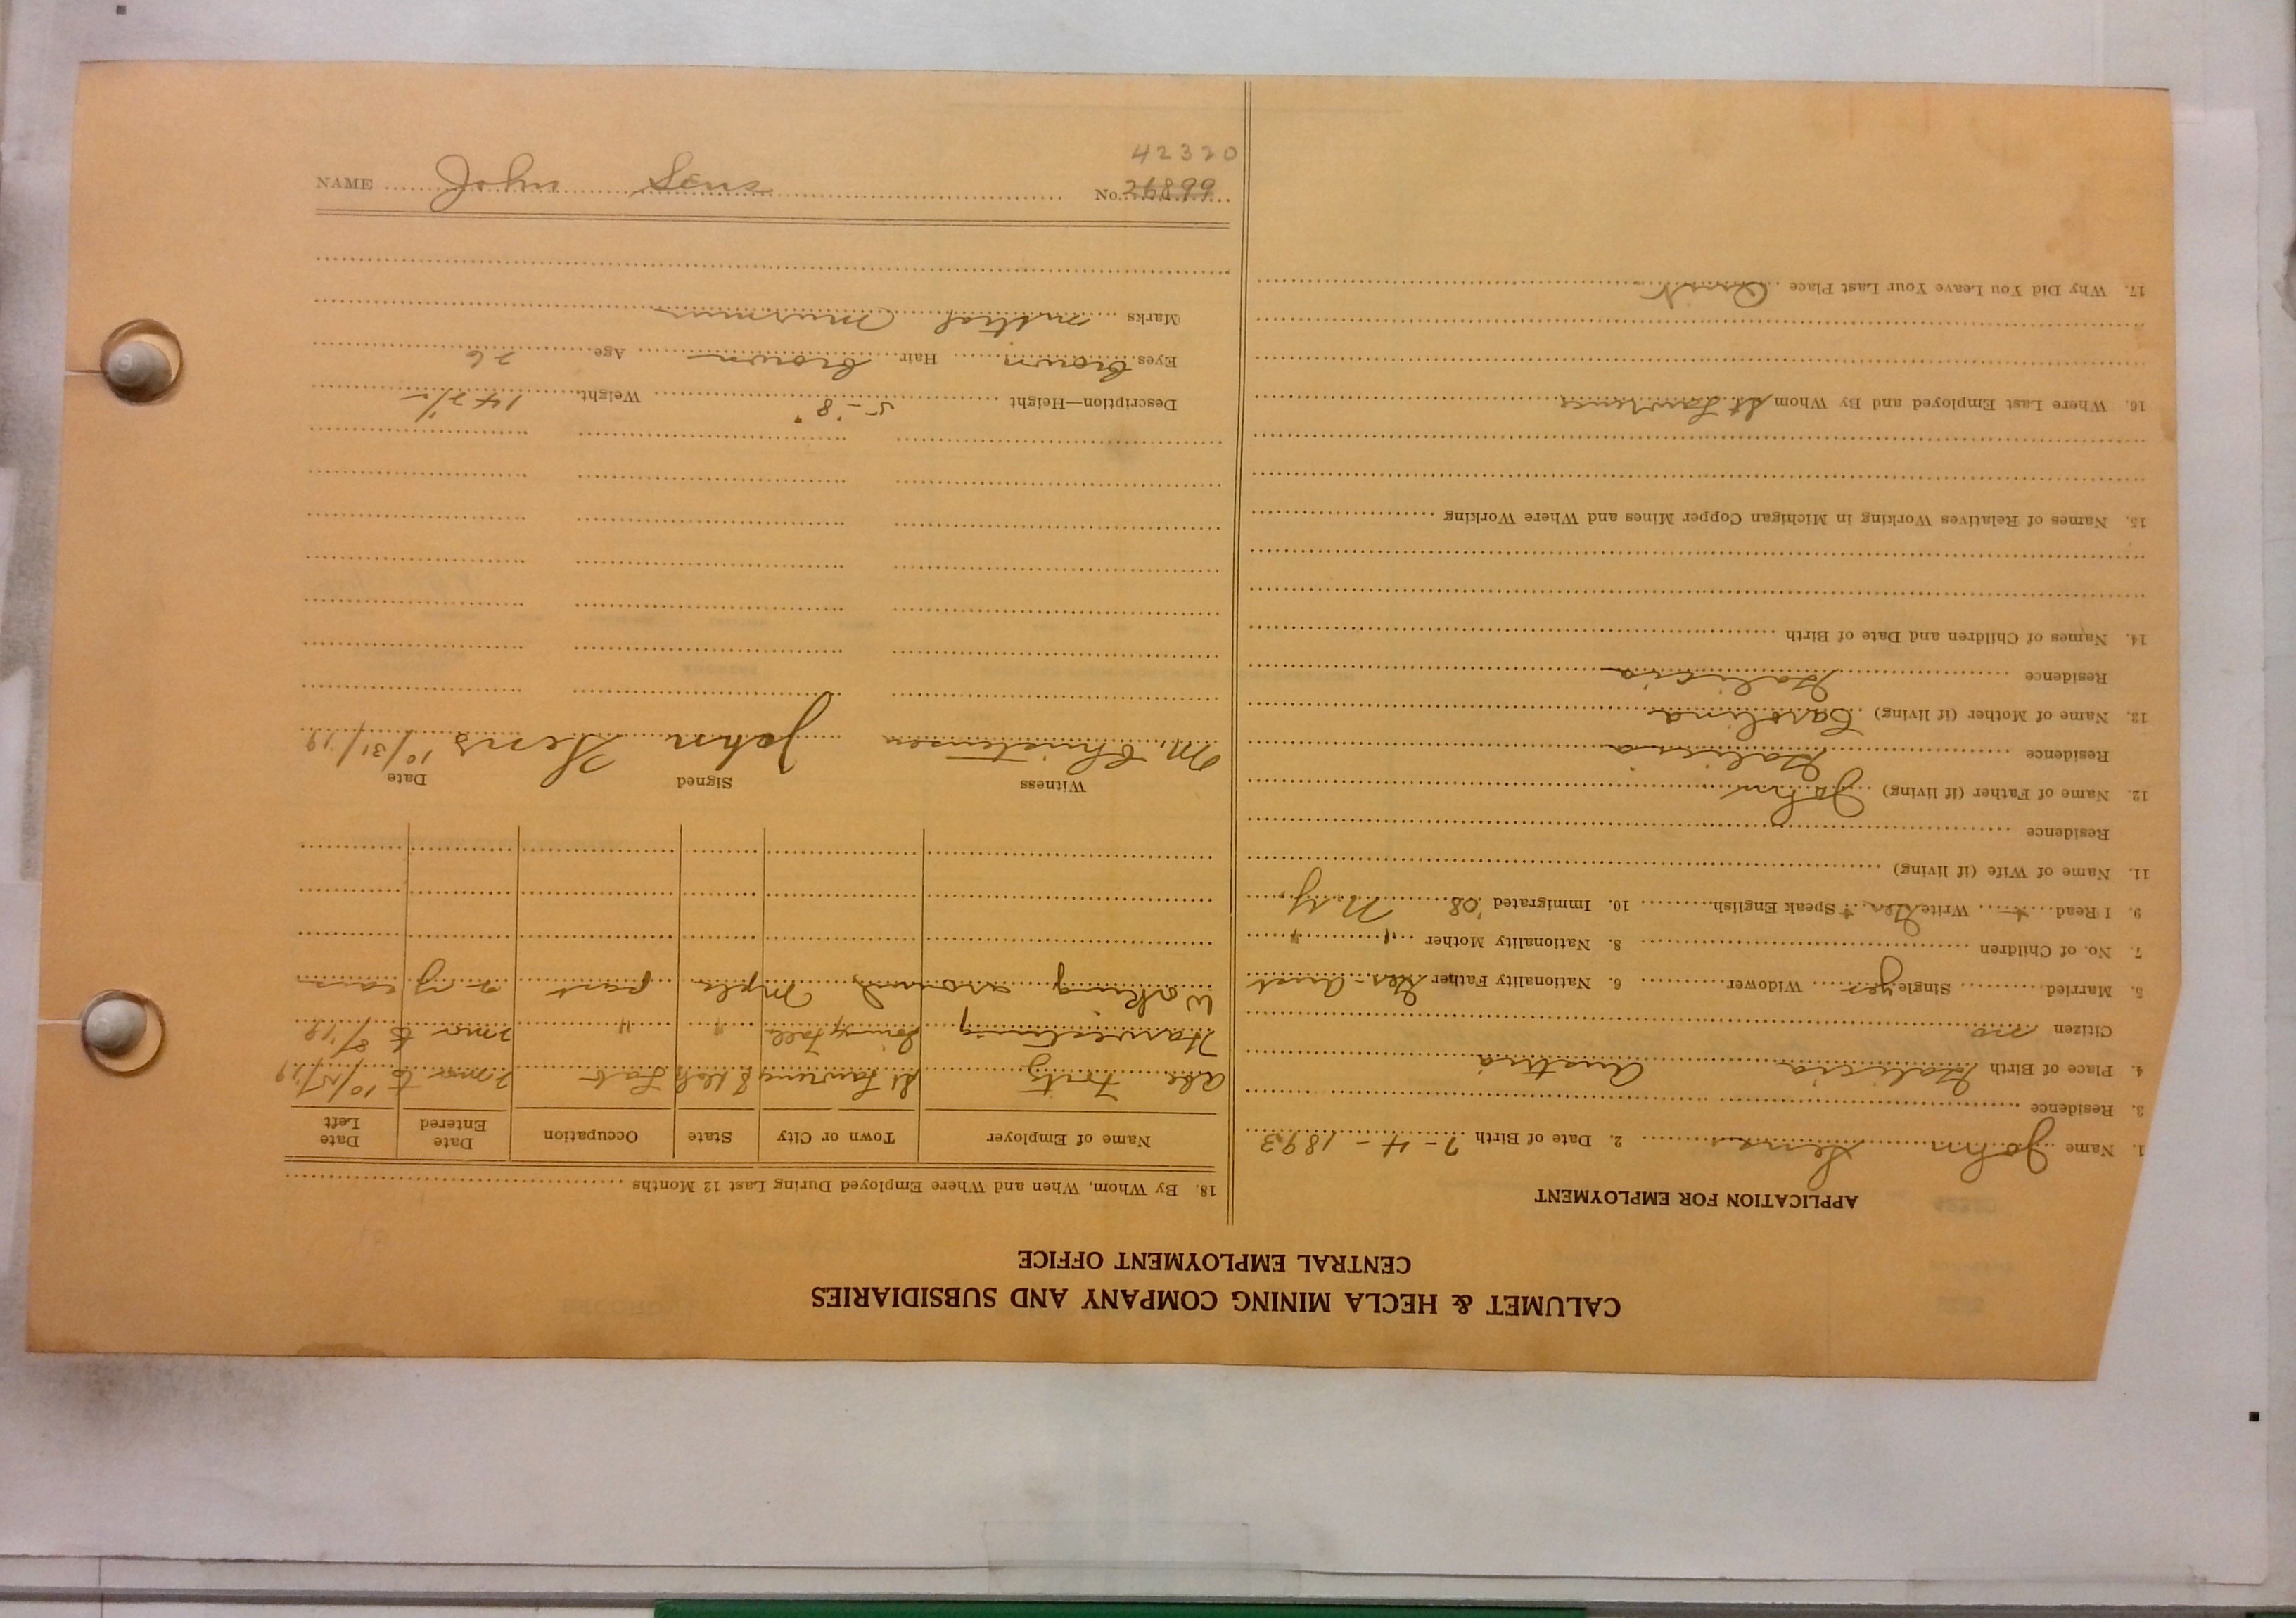 CALUMET & HECLA MINING COMPANY AND SUBSIDIARIES
CENTRAL EMPLOYMENT OFFICE
APPLICATION FOR EMPLOYMENT
1. Name John Sens 2. Date of Birth 7-4-1893
3. Residence
4. Place of Birth Galicia Austria
Citizen no
5. Married Single yes Widower 6. Nationality Father Ger-Aust
7. No. of Children 8. Nationality Mother " "
9. I Read + Write Ger. + Speak English 10. Immigrated '08 N.Y.
11. Name of Wife (if living)
Residence
12. Name of Father (if living) John
Residence Galicia
13. Name of Mother (if living) Carolina
Residence Galicia
14. Names of Children and Date of Birth
15. Names of Relatives Working in Michigan Copper Mines and Where Working
16. Where Last Employed and By Whom St Lawrence
17. Why Did You Leave Your Last Place Quit
18. By Whom, When and Where Employed During Last 12 Months
Name of Employer Town or City State Occupation Date Entered Date Left
Abe St Lawrence S Dak Lab 2 mos to 10/15/19
Harvesting " " 2 mos to 8/19
Working around Mpls past 2 years
Witness Signed Date
M. Christensen John Sens 10/31/19
Description—Height 5-8" Weight 147 1/2
Eyes brown Hair brown Age 26
Marks mitral murmur
42320
NAME John Sens No. 26899